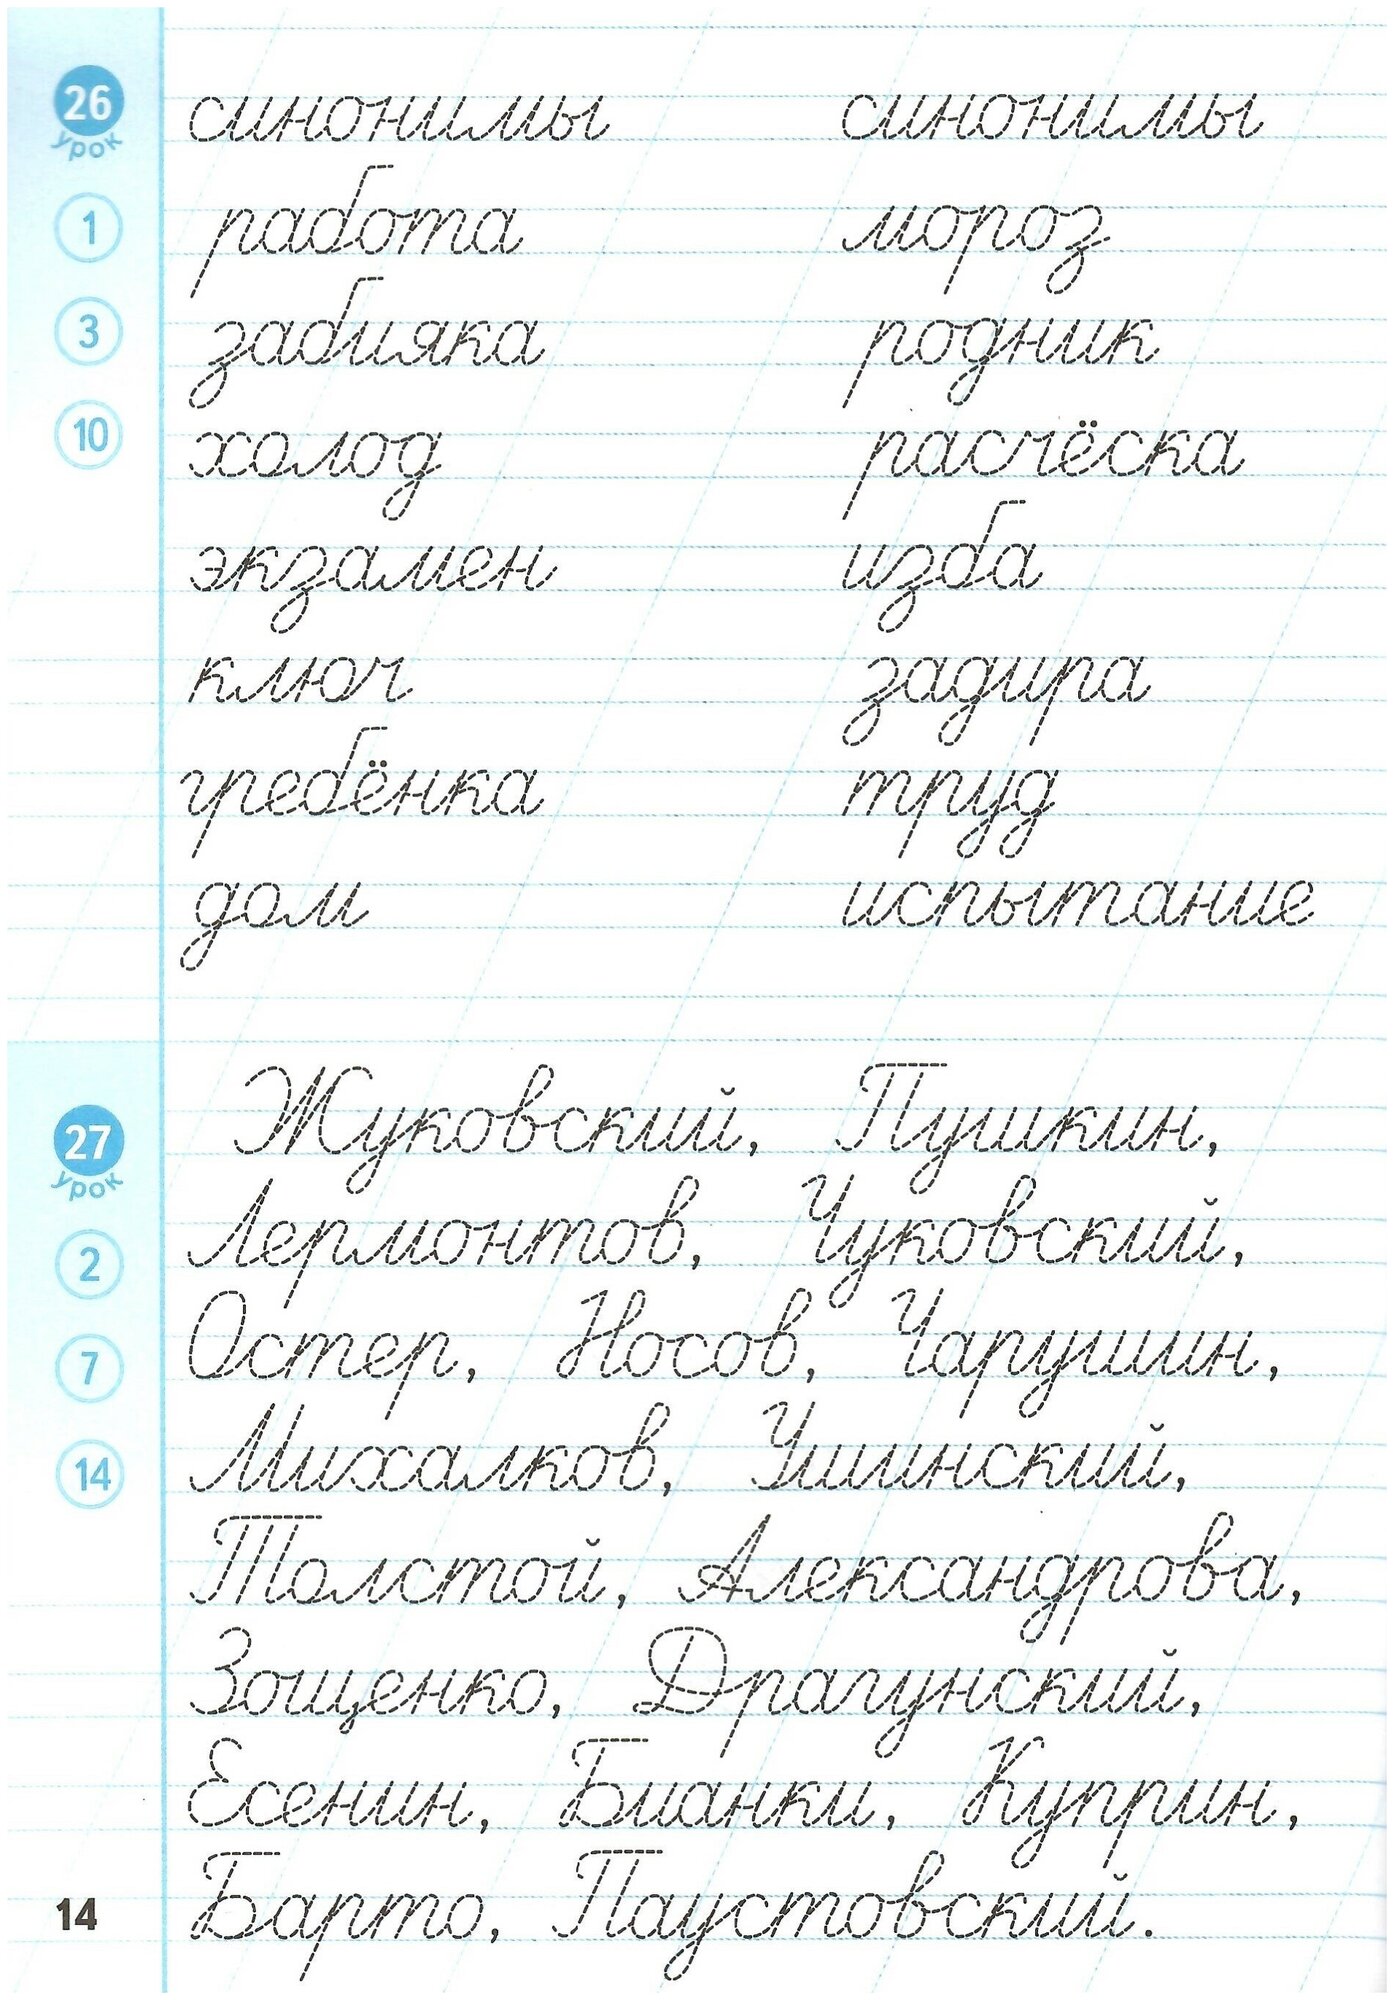 26 синонимы синонимы
урок
1 работа мороз
3 забияка родник
10 холод расчёска
экзамен изба
ключ задира
гребёнка труд
дом испытание
27 Жуковский, Пушкин,
урок
2 Лермонтов, Чуковский,
7 Остер, Носов, Чарушин,
14 Михалков, Ушинский,
Толстой, Александрова,
Зощенко, Драгунский,
Есенин, Бианки, Куприн,
14 Барто, Паустовский.